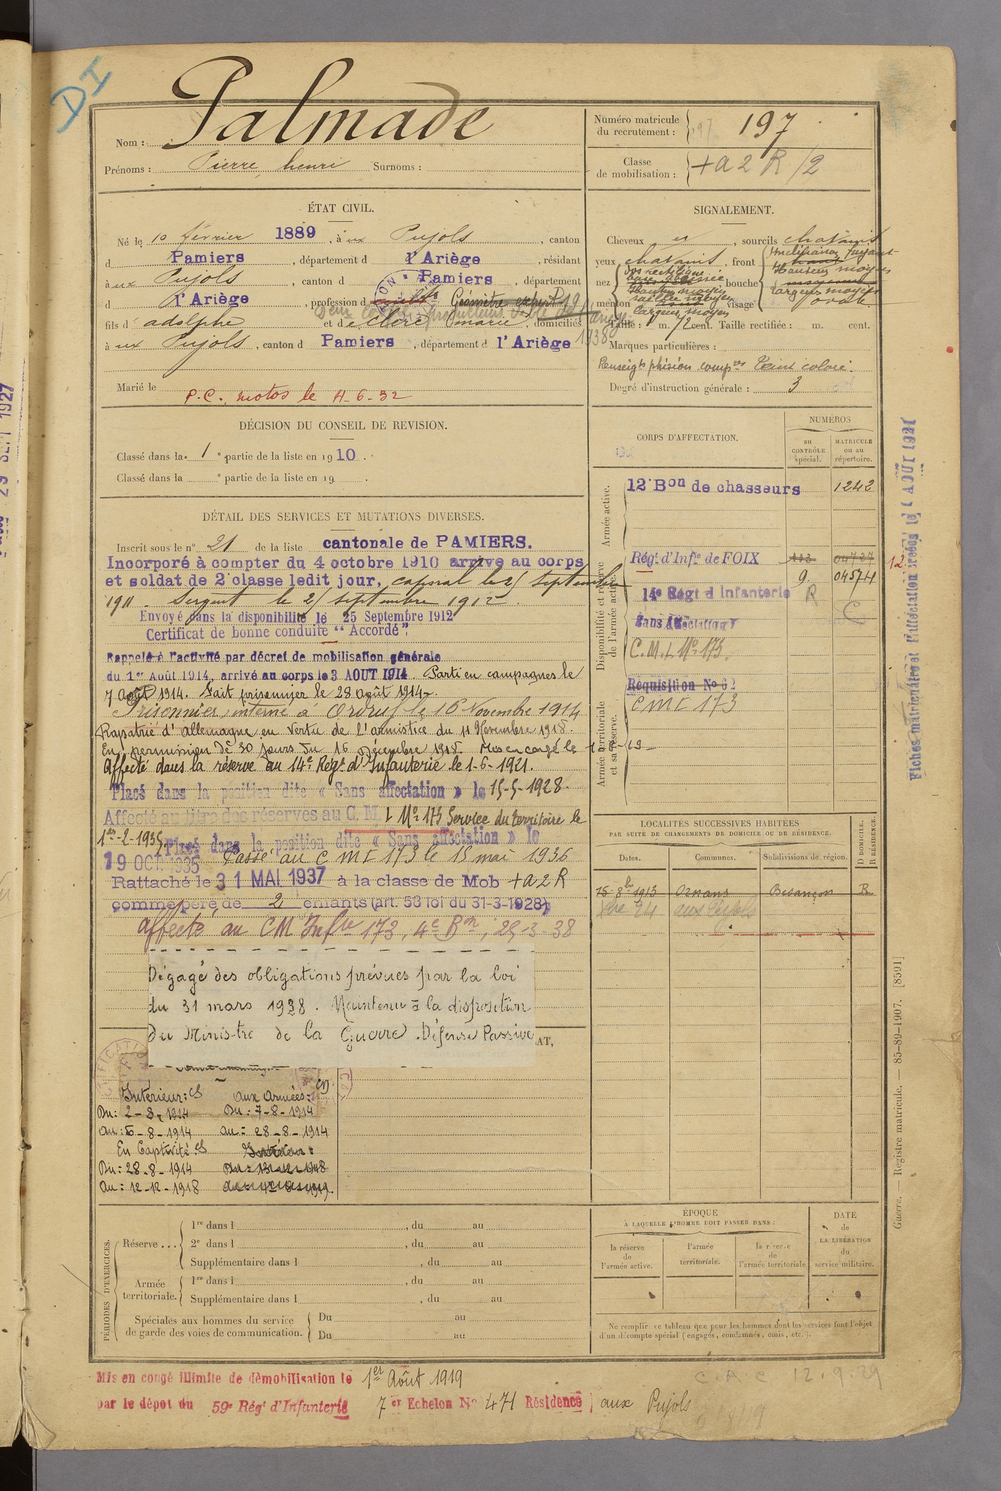 DI
Nom : Palmade
Prénoms : Pierre, henri Surnoms :
Numéro matricule du recrutement : 197
Classe de mobilisation : + a 2 R /2
ÉTAT CIVIL.
Né le 10 février 1889, à ux Pujols, canton
d Pamiers, département d l'Ariège, résidant
à ux Pujols, canton d Pamiers, département
d l'Ariège, profession d Géomètre expert
fils d' adolphe et de Claire marie, domiciliés
à ux Pujols, canton d Pamiers, département d l'Ariège
1938
Marié le
P.C. motos le 4-6-32
SIGNALEMENT.
Cheveux , sourcils chatains
yeux chatains, front
nez bouche
menton visage ovale
Taille : 1 m. 72 cent. Taille rectifiée : m. cent.
Marques particulières :
Renseigts phision. compres Teint coloré.
Degré d'instruction générale : 3
DÉCISION DU CONSEIL DE REVISION.
Classé dans la 1e partie de la liste en 1910.
Classé dans la e partie de la liste en 19 .
DÉTAIL DES SERVICES ET MUTATIONS DIVERSES.
Inscrit sous le n° 21 de la liste cantonale de PAMIERS.
Incorporé à compter du 4 octobre 1910 arrive au corps
et soldat de 2e classe ledit jour, caporal le 25 septembre
1911. Sergent le 25 septembre 1912.
Envoyé dans la disponibilité le 25 Septembre 1912
Certificat de bonne conduite "Accordé".
Rappelé à l'activité par décret de mobilisation générale
du 1er Août 1914, arrivé au corps le 3 AOUT 1914. Parti en campagnes le
7 Août 1914. Fait prisonnier le 28 août 1914.
Prisonnier, interné à Ordruf le 16 Novembre 1914
Rapatrié d'allemagne en vertu de l'armistice du 11 Novembre 1918.
En permission de 30 jours du 16 Décembre 1918. Mis en congé le 1-8-19
Affecté dans la réserve au 14e Régt d'Infanterie le 1-6-1921.
Placé dans la position dite « Sans affectation » le 15-5-1928.
Affecté au titre des réserves au C. M. I. No 173 Service du territoire le
1er-2-1935. Placé dans la position dite « Sans affectation » le
19 OCT. 1935 Passé au C M I 173 le 15 mai 1936
Rattaché le 31 MAI 1937 à la classe de Mob + a 2 R
comme père de 2 enfants (art. 58 loi du 31-3-1928)
Affecté au CM Infie 173, 4e Bon, 25-3-38
Dégagé des obligations prévues par la loi
du 31 mars 1928. Maintenu à la disposition
du Ministre de la Guerre. Défense Passive
Intérieur: CS aux Armées:
Du: 2-8-1914 Du: 7-8-1914
au: 6-8-1914 au: 28-8-1914
En Captivité CS
Du: 28-8-1914
au: 12-12-1918
CORPS D'AFFECTATION.
NUMÉROS
DU CONTRÔLE spécial.
MATRICULE ou au répertoire.
Armée active.
12e Bon de chasseurs 1242
Disponibilité et réserve de l'armée active.
Régt d'Infie de FOIX
9 04574
14e Régt d'Infanterie R
Sans Affectation C
C.M.I. No 173
Armée territoriale et sa réserve.
Réquisition No 62
CMI 173
LOCALITÉS SUCCESSIVES HABITÉES
PAR SUITE DE CHANGEMENTS DE DOMICILE OU DE RÉSIDENCE.
Dates. Communes. Subdivisions de région. D DOMICILE. R RÉSIDENCE.
15-8bre 1913 Ornans Besançon R
aux Pujols
Fiches matriculaires et d'affectation créées le AOUT 1921
Guerre. — Registre matricule. — 85-89-1907. [8591]
PÉRIODES D'EXERCICES.
Réserve ... 1re dans l , du au
2e dans l , du au
Supplémentaire dans l , du au
Armée territoriale. 1re dans l , du au
Supplémentaire dans l , du au
Spéciales aux hommes du service de garde des voies de communication. Du au
Du au
ÉPOQUE
À LAQUELLE L'HOMME DOIT PASSER DANS :
la réserve de l'armée active.
l'armée territoriale.
la réserve de l'armée territoriale.
DATE de LA LIBÉRATION du service militaire.
Ne remplir ce tableau que pour les hommes dont les services font l'objet
d'un décompte spécial (engagés, condamnés, omis, etc.).
Mis en congé illimité de démobilisation le 1er Août 1919
par le dépôt du 59e Régt d'Infanterie 7er Echelon No 471 Résidence aux Pujols
C.A.C 12.9.29